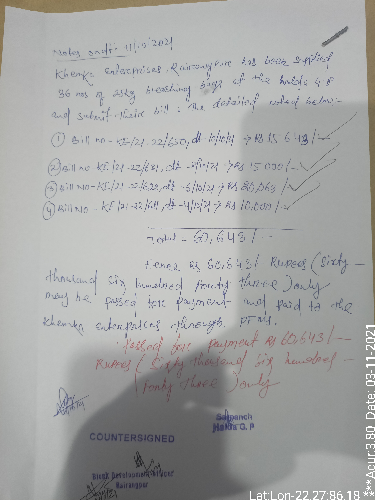 Notes order 11/10/2021
Khemka enterprises, Rairangpur has been supplied
36 nos of 25kg bleaching bags at the
and submit their bill. The detailed below-
① Bill no - KE/21-22/620, dt - → Rs 15,643/-
② Bill no - KE/21-22/621, dt - → Rs 15,000/-
③ Bill no - KE/21-22/622, dt - → Rs 20,063/-
④ Bill no - KE/21-22/611, dt - → Rs 10,000/-
Total - 60,643/-
Hence Rs 60,643/- Rupees (Sixty
thousand six hundred fourty three) only
may be passed for payment and paid to the
Khemka enterprises through PFMS.
Passed for payment Rs 60,643/-
Rupees (Sixty thousand six hundred
fourty three) only
Sarpanch
G.P
COUNTERSIGNED
Block Development Officer
Rairangpur
Lat:Lon-22.27:86.18
***Acur:3.80 Date:03-11-2021